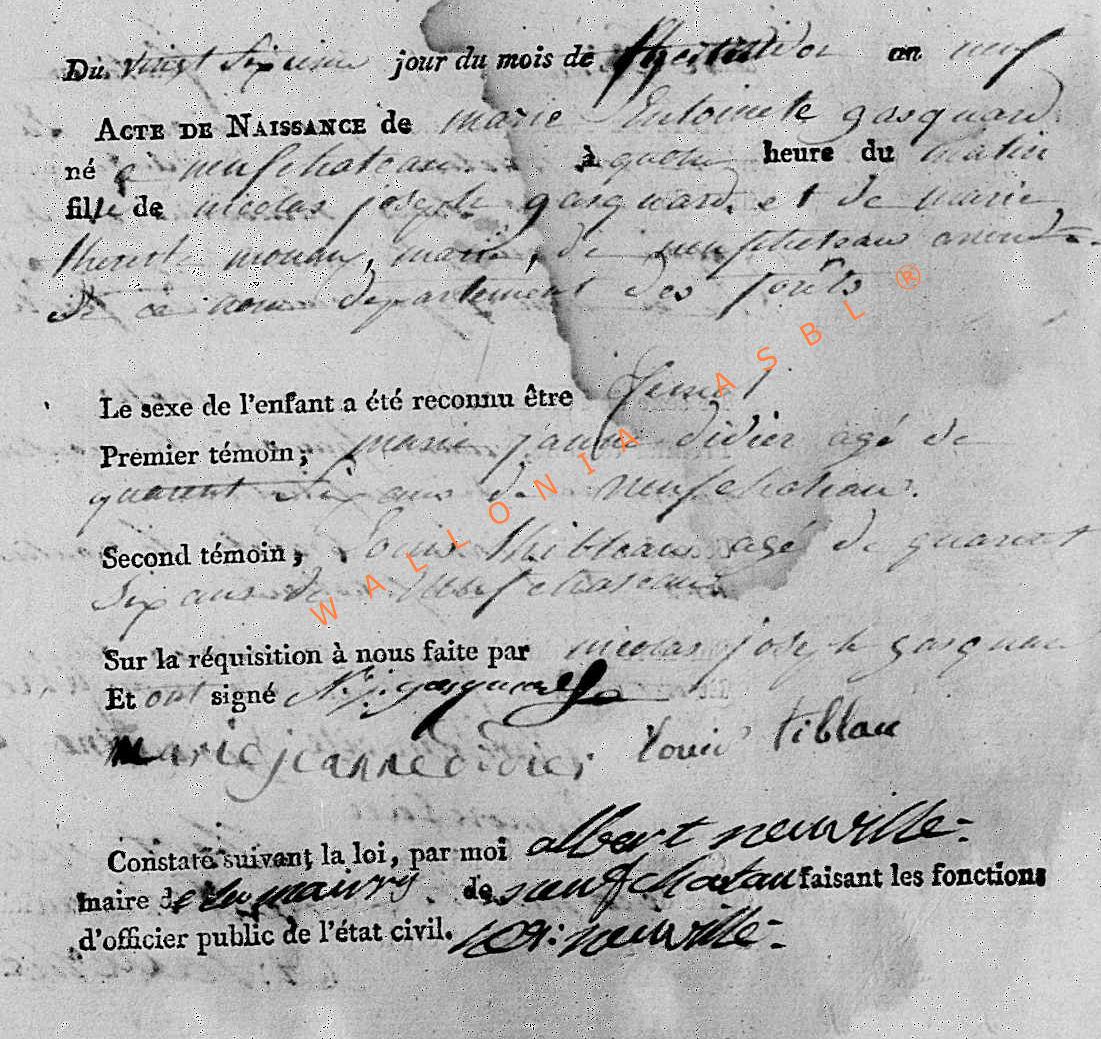 Du vingt sixieme jour du mois de an neuf
ACTE DE NAISSANCE de marie Antoinete gasquard
né a neufchateau à quatre heure du matin
fille de nicolas joseph gasquard et de marie
therest , marié, de neufchateau
departement des forêts
Le sexe de l'enfant a été reconnu être femel
Premier témoin, marie janne didier agé de
quarent six ans de neufchateau.
Second témoin, Louis Thibleau agé de quarent
six ans de neufchateau
Sur la réquisition à nous faite par nicolas joseph gasquard
Et ont signé N. j. gasquard
marie jeanne didier Louis tiblau
Constaté suivant la loi, par moi albert neuville
maire de la mairy de neufchatau faisant les fonctions
d'officier public de l'état civil. neuville
WALLONIA ASBL ®